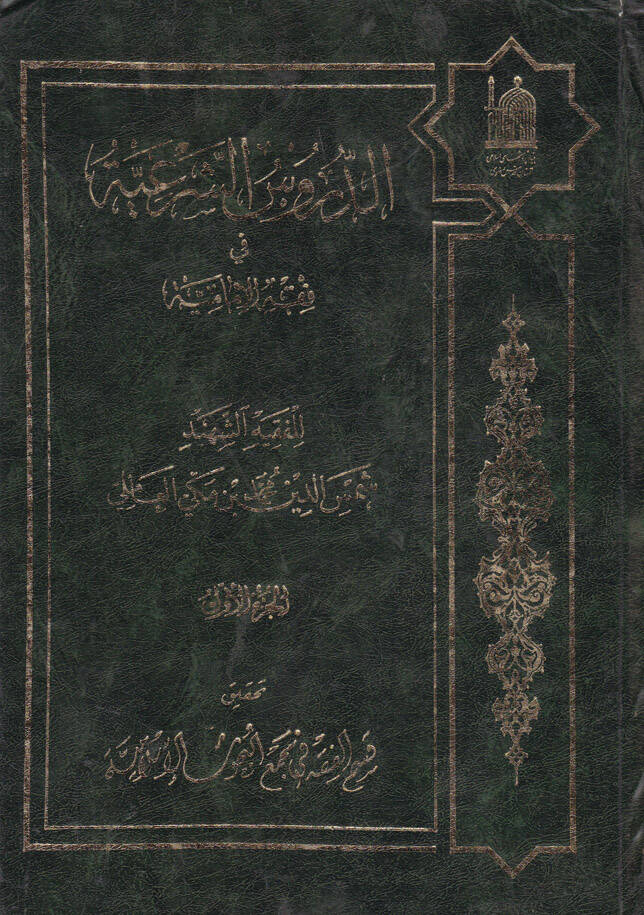 الدُّرُوسُ الشَّرعِيَّةُ
في
فِقهِ الإِمامِيَّةِ
للفقيه الشهيد
شمس الدين محمد بن مكي العاملي
الجزء الأول
تحقيق
قسم الفقه في مجمع البحوث الإسلامية